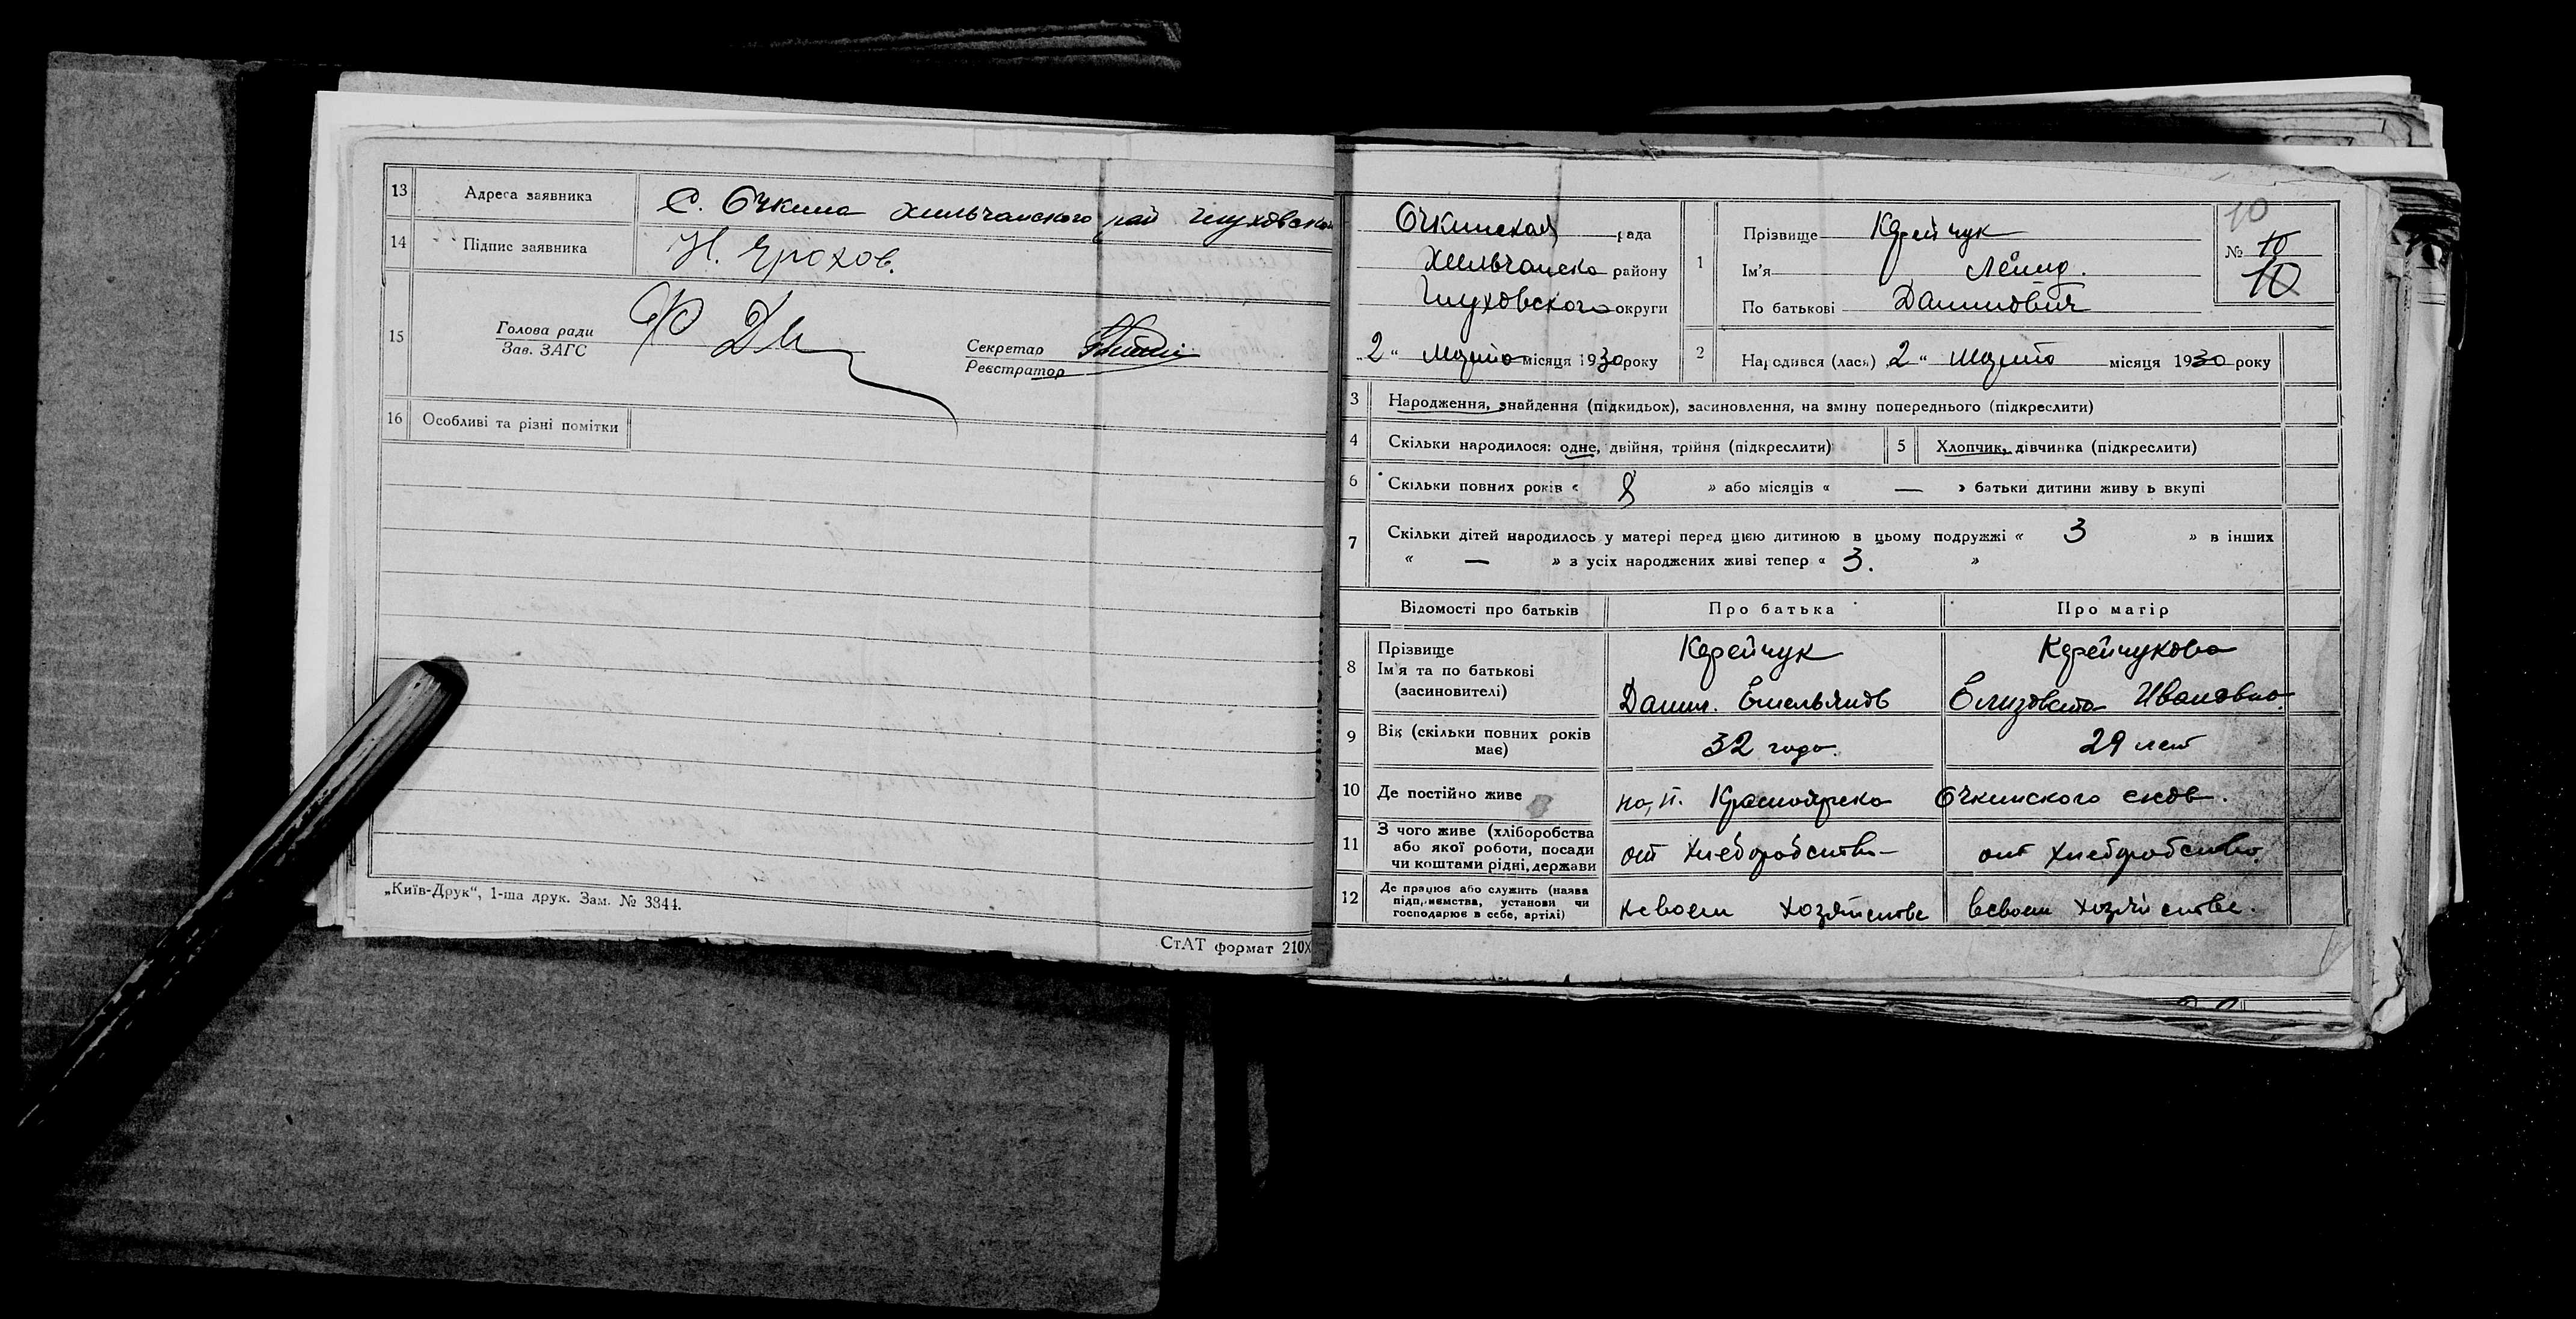 13 Адреса заявника С. Очкина Хильчанского рай Глуховско
14 Підпис заявника Н. Ерохов.
15 Голова ради
Зав. ЗАГС
Секретар
Реєстратор
16 Особливі та різні помітки
„Київ-Друк“, 1-ша друк. Зам. № 3844.
СтАТ формат 210Х
Очкинская рада
Хильчанско району
Глуховского округи
„2“ марта місяця 1930 року
1 Прізвище Карейчук
Ім'я Леинд.
По батькові Данилович
10
№ 10
10
2 Народився (лася) „2“ марта місяця 1930 року
3 Народження, знайдення (підкидьок), засиновлення, на зміну попереднього (підкреслити)
4 Скільки народилося: одне, двійня, трійня (підкреслити) 5 Хлопчик, дівчинка (підкреслити)
6 Скільки повних років « 8 » або місяців « — » батьки дитини живуть вкупі
7 Скільки дітей народилось у матері перед цією дитиною в цьому подружжі « 3 » в інших
« — » з усіх народжених живі тепер « 3. »
Відомості про батьків Про батька Про матір
8 Прізвище Карейчук Карейчукова
Ім'я та по батькові
(засновителі) Данил. Емельянов Елизовета Ивановна.
9 Вік (скільки повних років
має) 32 года. 29 лет
10 Де постійно живе на, п. Красноярска Очкинского сков.
11 З чого живе (хліборобства
або якої роботи, посади
чи коштами рідні, держави от хлеборобства от хлеборобства.
12 Де працює або служить (назва
підприємства, установи чи
господарює в себе, артілі) всвоем хозяйстве всвоем хозяйстве.